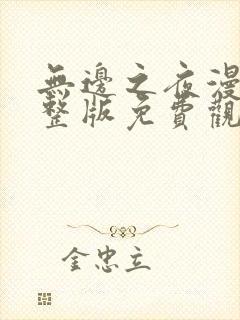 無邊之夜漫
整版免費觀
金忠立